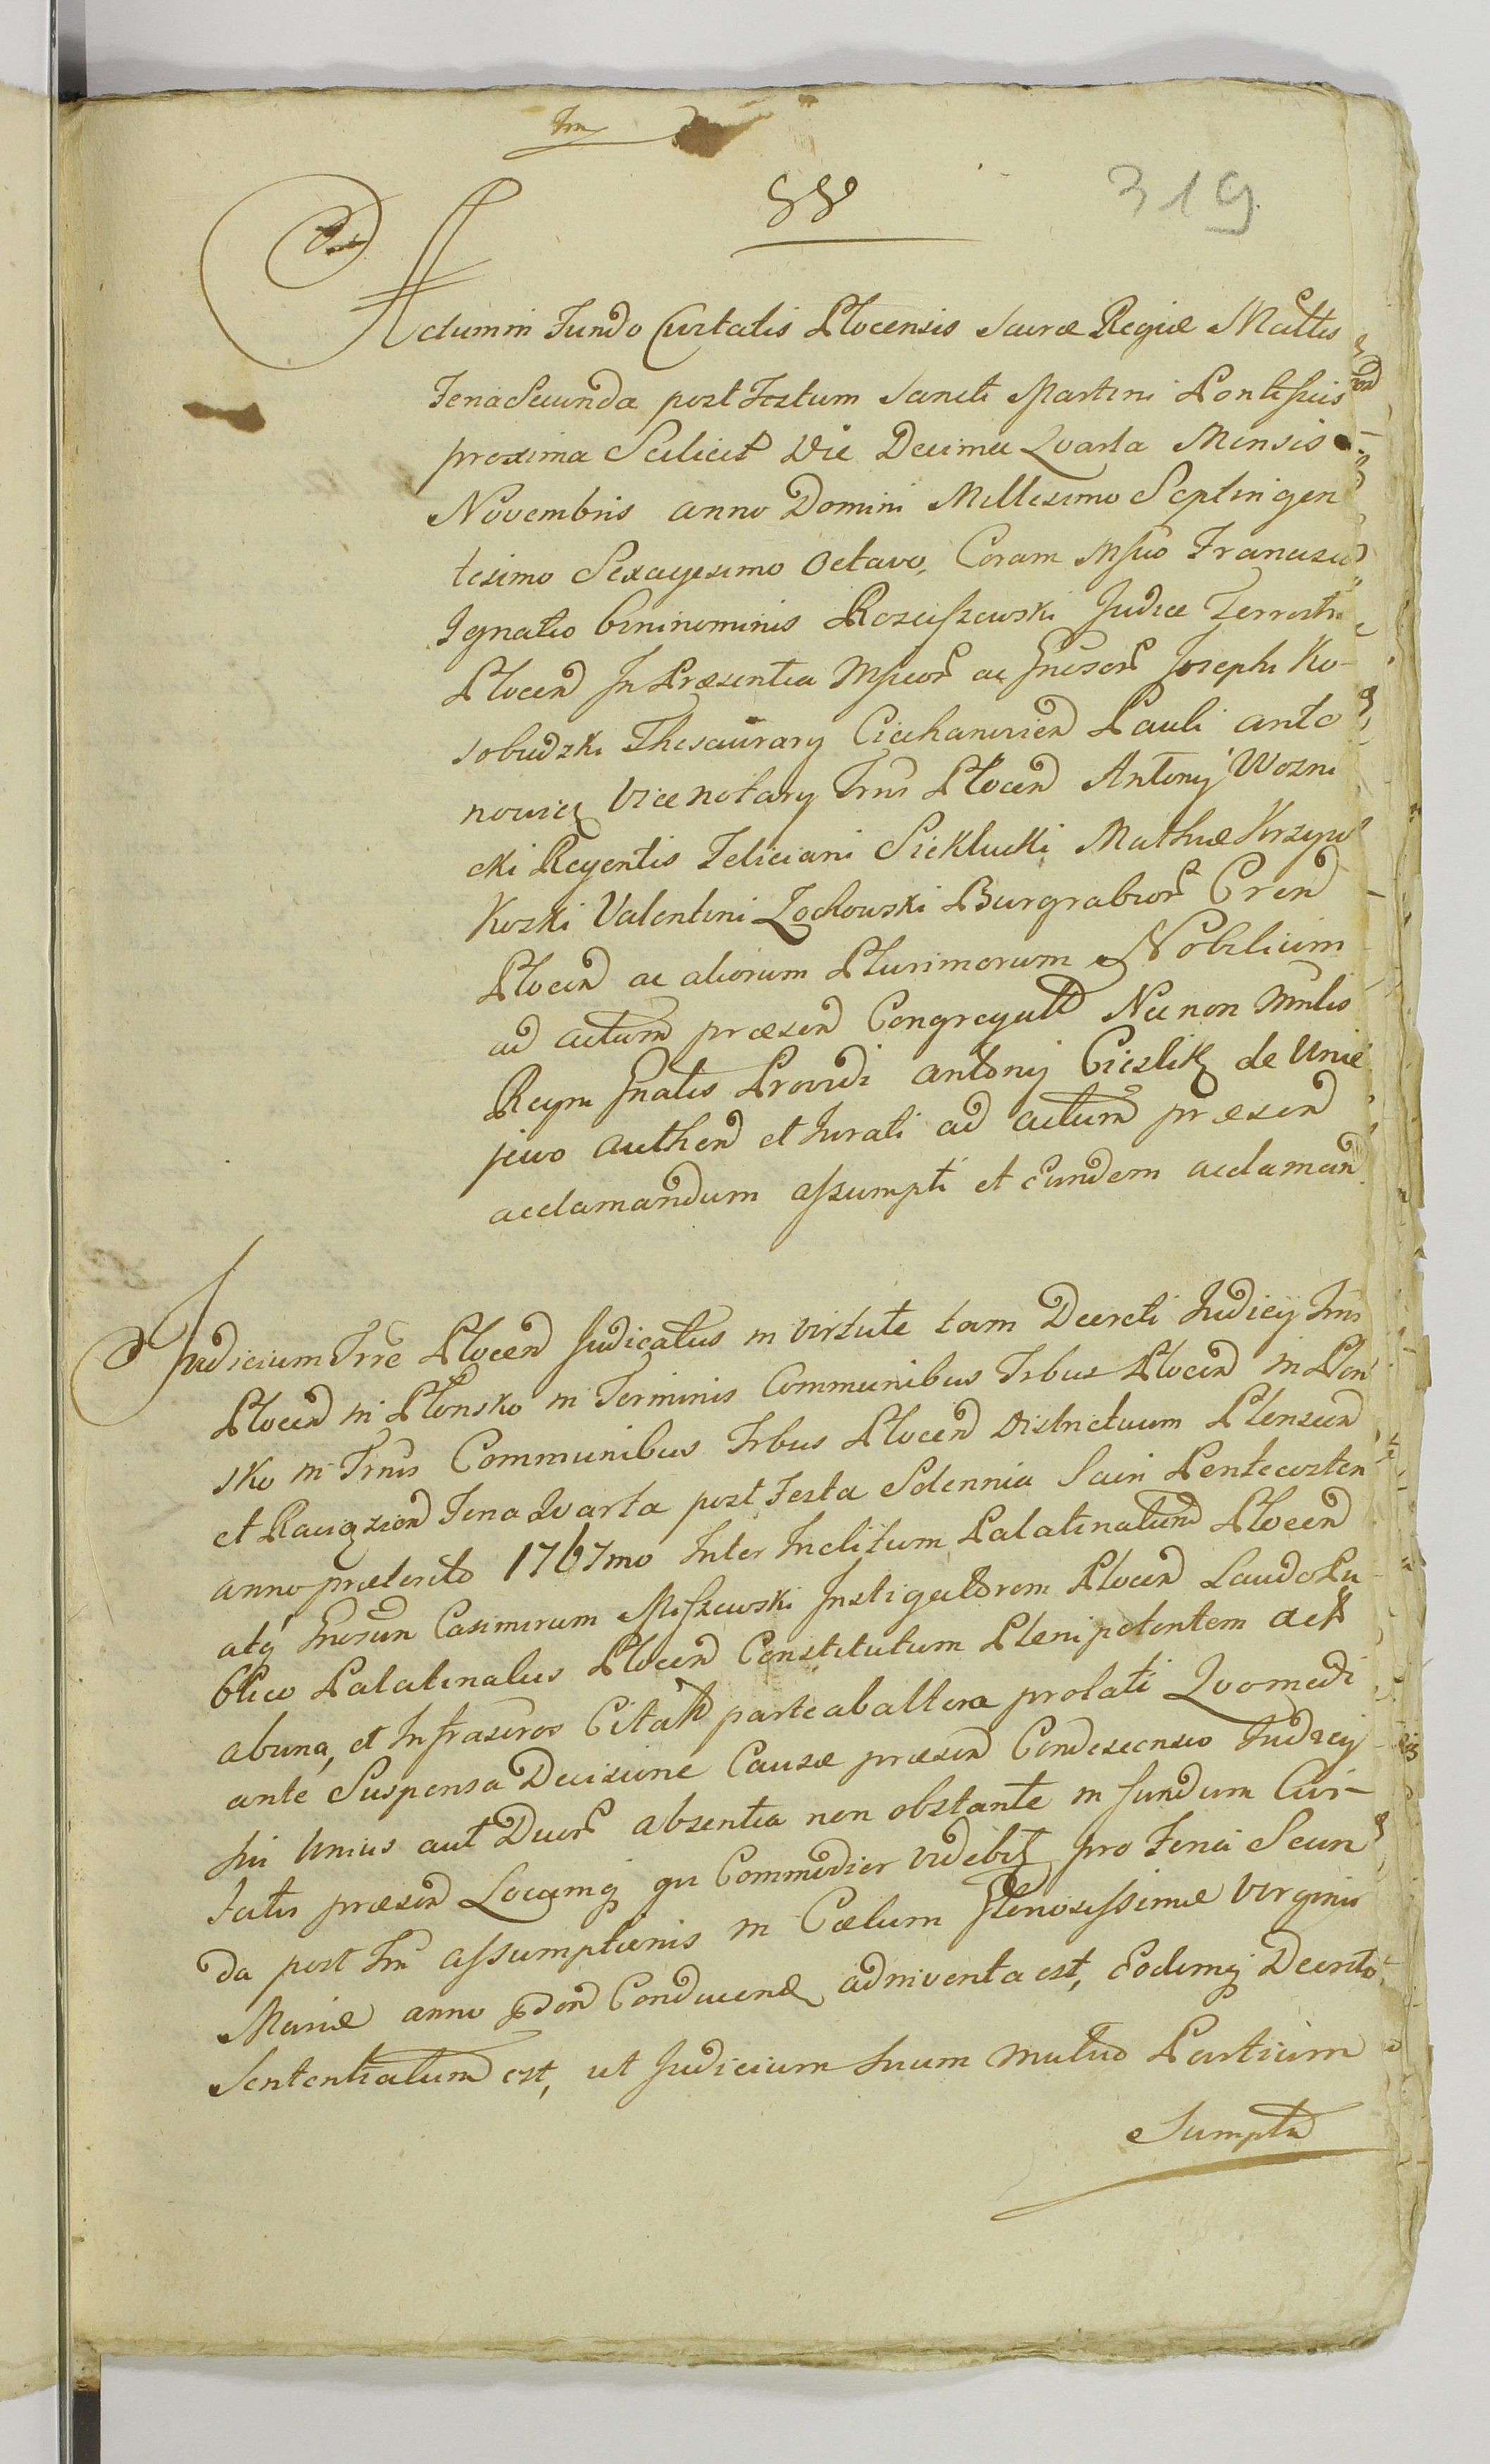 319
Actum in Fundo Civitatis Plocensis Sacræ Regiæ Mattis
Feria Secunda post Festum Sancti Martini Pontificis
proxima Scilicet Die Decima Qvarta Mensis
Novembris anno Domini Millesimo Septingen
tesimo Sexagesimo Octavo, Coram Mfico Francisco
Ignatio bininominis Rosciszewski Judice Terrestri
Plocen In Præsentia Mficor ac Gnesor Josephi Ko-
sobudzki Thesaurary Ciechanovien Pauli anto
nowicz Vice notary Trris Plocen Antony Wozni
cki Regentis Feliciani Sieklucki Mathiæ Krzyw
kozki Valentini Zochowski Burgrabior Cren
Plocen ac aliorum Plurimorum Nobilium
ad actum præsen Congregat Nec non Mnlis
Regni Gnalis Providi antony Cieslik de Unie
jewo authen et Jurati ad actum præsen
acclamandum assumpti et Eundem acclaman
Judicium Trre Plocen Judicatus in virtute tam Decreti Judicy Trris
Plocen in Plonsko in Terminis Communibus Trbus Plocen in Plon
sko in Trnis Communibus Trbus Plocen Districtuum Plonscen
et Raciązien Feria Qvarta post Festa Solennia Sacri Pentecosten
anno præterito 1767mo Inter Inclitum Palatinatum Plocen
atq Gnosum Casimirum Miszewski Instigatorem Plocen Laudo Pu
blico Palatinatus Plocen Constitutum Plenipotentem act
ab una, et Infrascros Citat parte ab altera prolati Qvo medi
ante Suspensa Decisione Causæ præsen Condescensio Judicy
sui Unius aut Duor absentia non obstante in fundum Civi-
tatis præsen Locumq qu Commodior videbit pro Feria Secun
da post Fm assumptionis in Cœlum Glorosissimæ Virginis
Mariæ anno eodem Conducen adinventa est, Eodemq Decreto
Sententiatum est, ut Judicium suum mutuo Partium
Sumptu